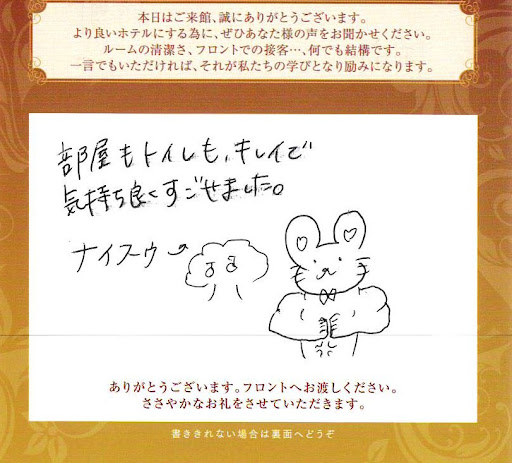 本日はご来館、誠にありがとうございます。
より良いホテルにする為に、ぜひあなた様の声をお聞かせください。
ルームの清潔さ、フロントでの接客…、何でも結構です。
一言でもいただければ、それが私たちの学びとなり励みになります。
部屋もトイレも、キレイで
気持ち良くすごせました。
ナイスーウ
ありがとうございます。フロントへお渡しください。
ささやかなお礼をさせていただきます。
書ききれない場合は裏面へどうぞ